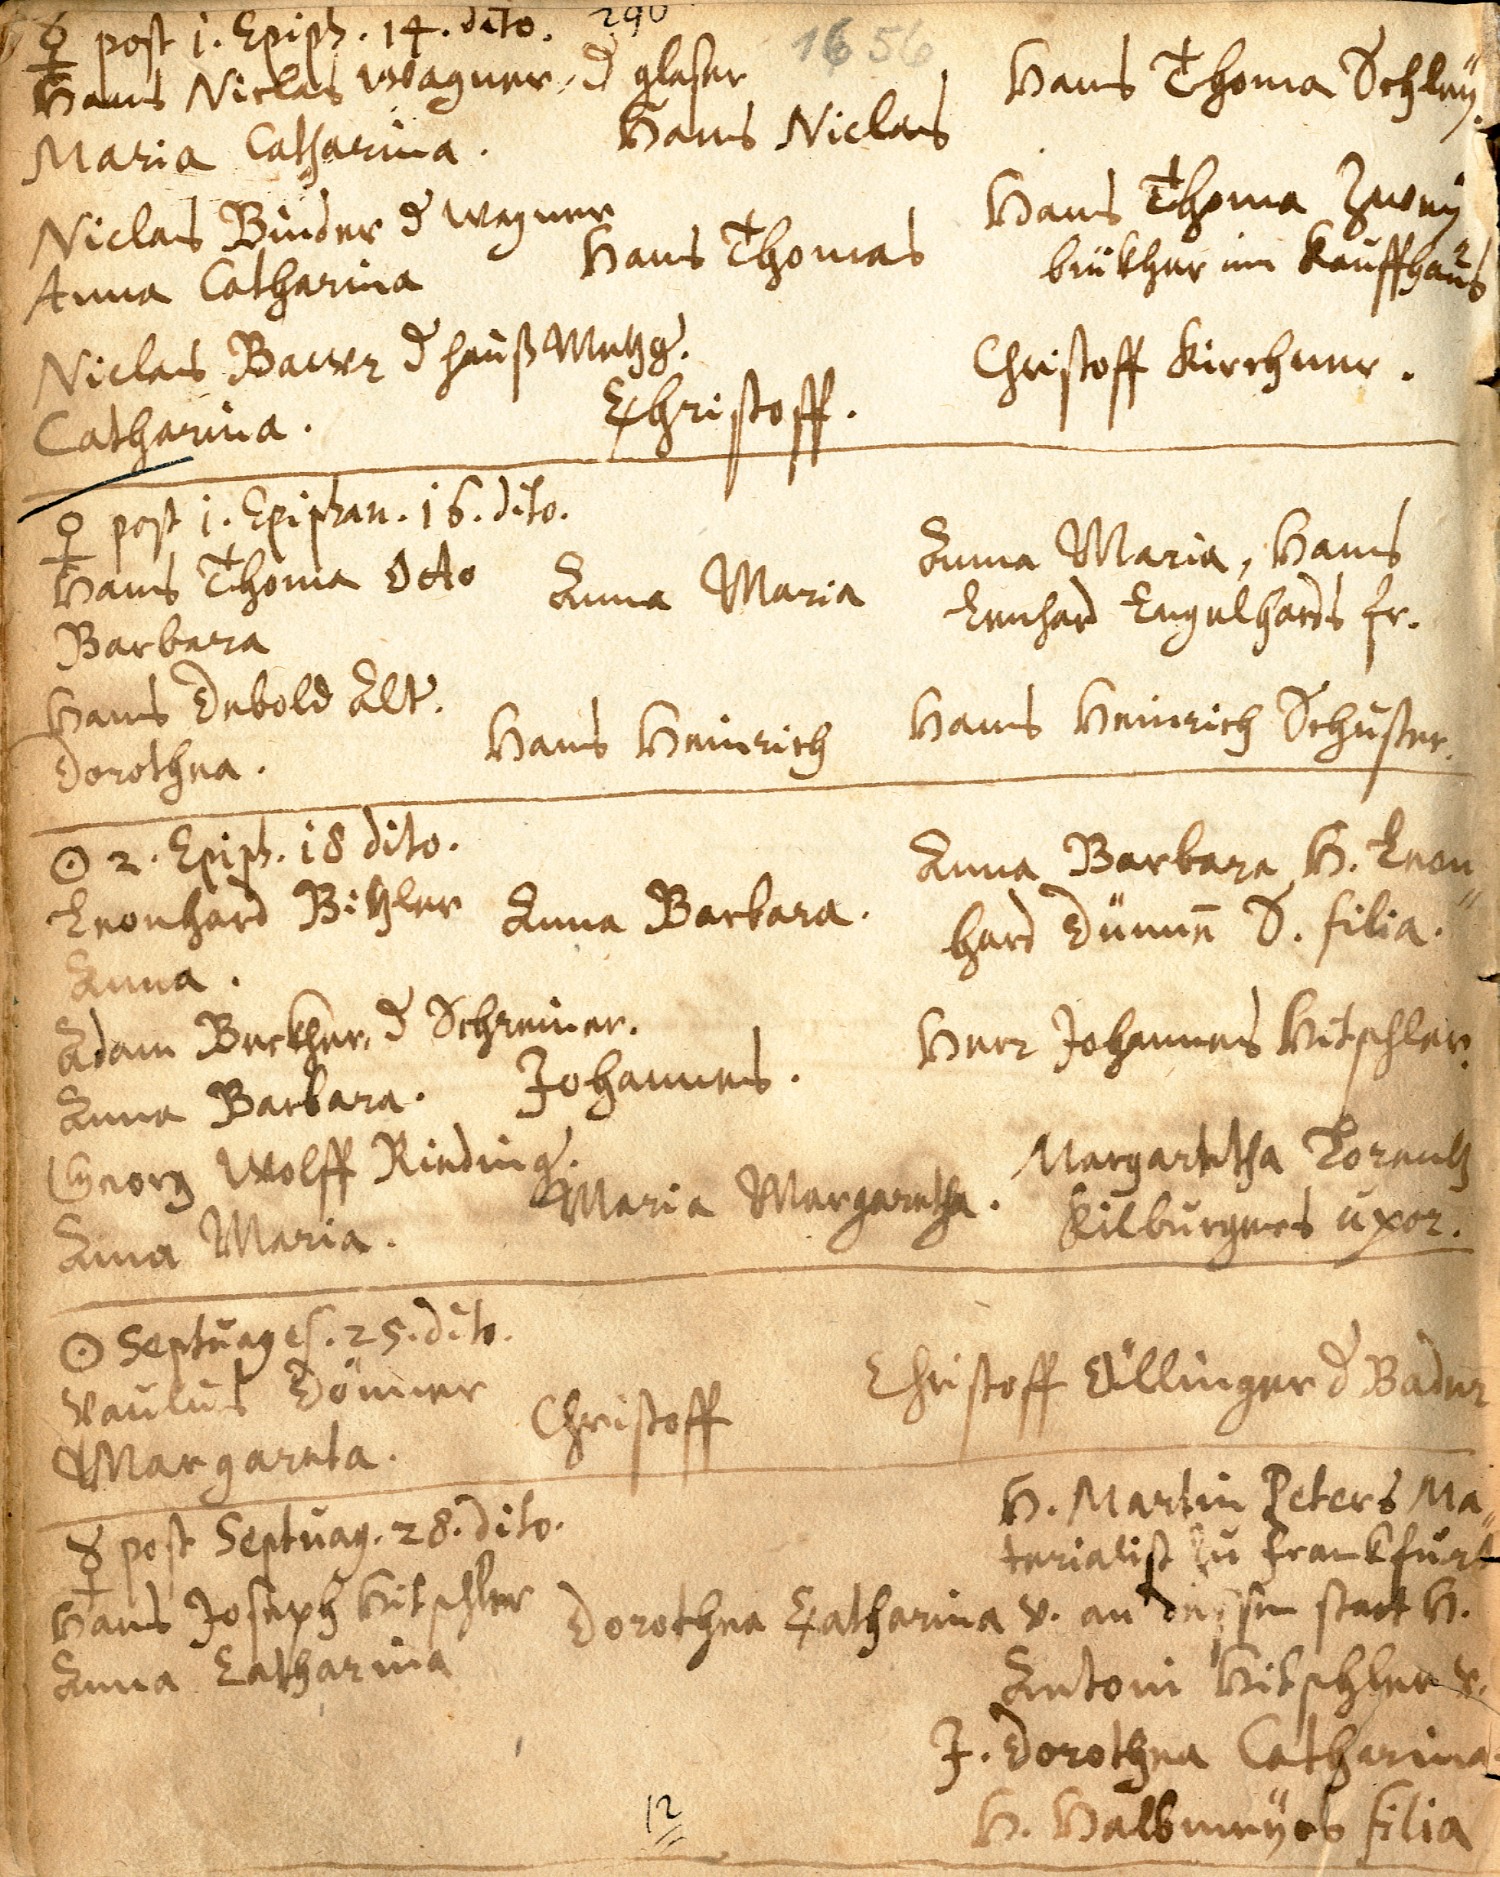 290
1656
☿ post 1. Epiph. 14. dito.
Hans Niclas Wagner, d glaser
Maria Catharina.
Hans Niclaus
Hans Thoma Schley.
Niclaus Binder d Wagner
Anna Catharina
Hans Thomas
Hans Thoma Zwey
brükher im Kauffhaus
Niclaus Bawr d haußMetzg.
Catharina.
Christoff.
Christoff Kirchner.
♀ post 1. Epiphan. 16. dito.
Hans Thoma Otto
Barbara
Anna Maria
Anna Maria, Hans
Lenhard Engelhards fr.
Hans Debold Alt.
Dorothea.
Hans Heinrich
Hans Heinrich Schuster.
☉ 2. Epiph. 18 dito.
Leonhard Bitzler
Anna.
Anna Barbara.
Anna Barbara H. Leon„
hard Dümen S. filia.
Adam Beckher, d Schreiner.
Anna Barbara.
Johannes.
Herr Johannes Hitschler.
Georg Wolff Rieding.
Anna Maria.
Maria Margaretha.
Margaretha Lorentz
Kilburgers uxor.
☉ Septuages. 25. dito.
Paulus Dömer
Margareta.
Christoff
Christoff Dillinger d Bader
☿ post Septuag. 28. dito.
Hans Joseph Hitschler
Anna Catharina
Dorothea Catharina
H. Martin Peters Ma„
terialist zu Franckfurt
v. an dessen statt H.
Antoni Hitschler v.
J. Dorothea Catharina
H. Halbmeyers filia
12